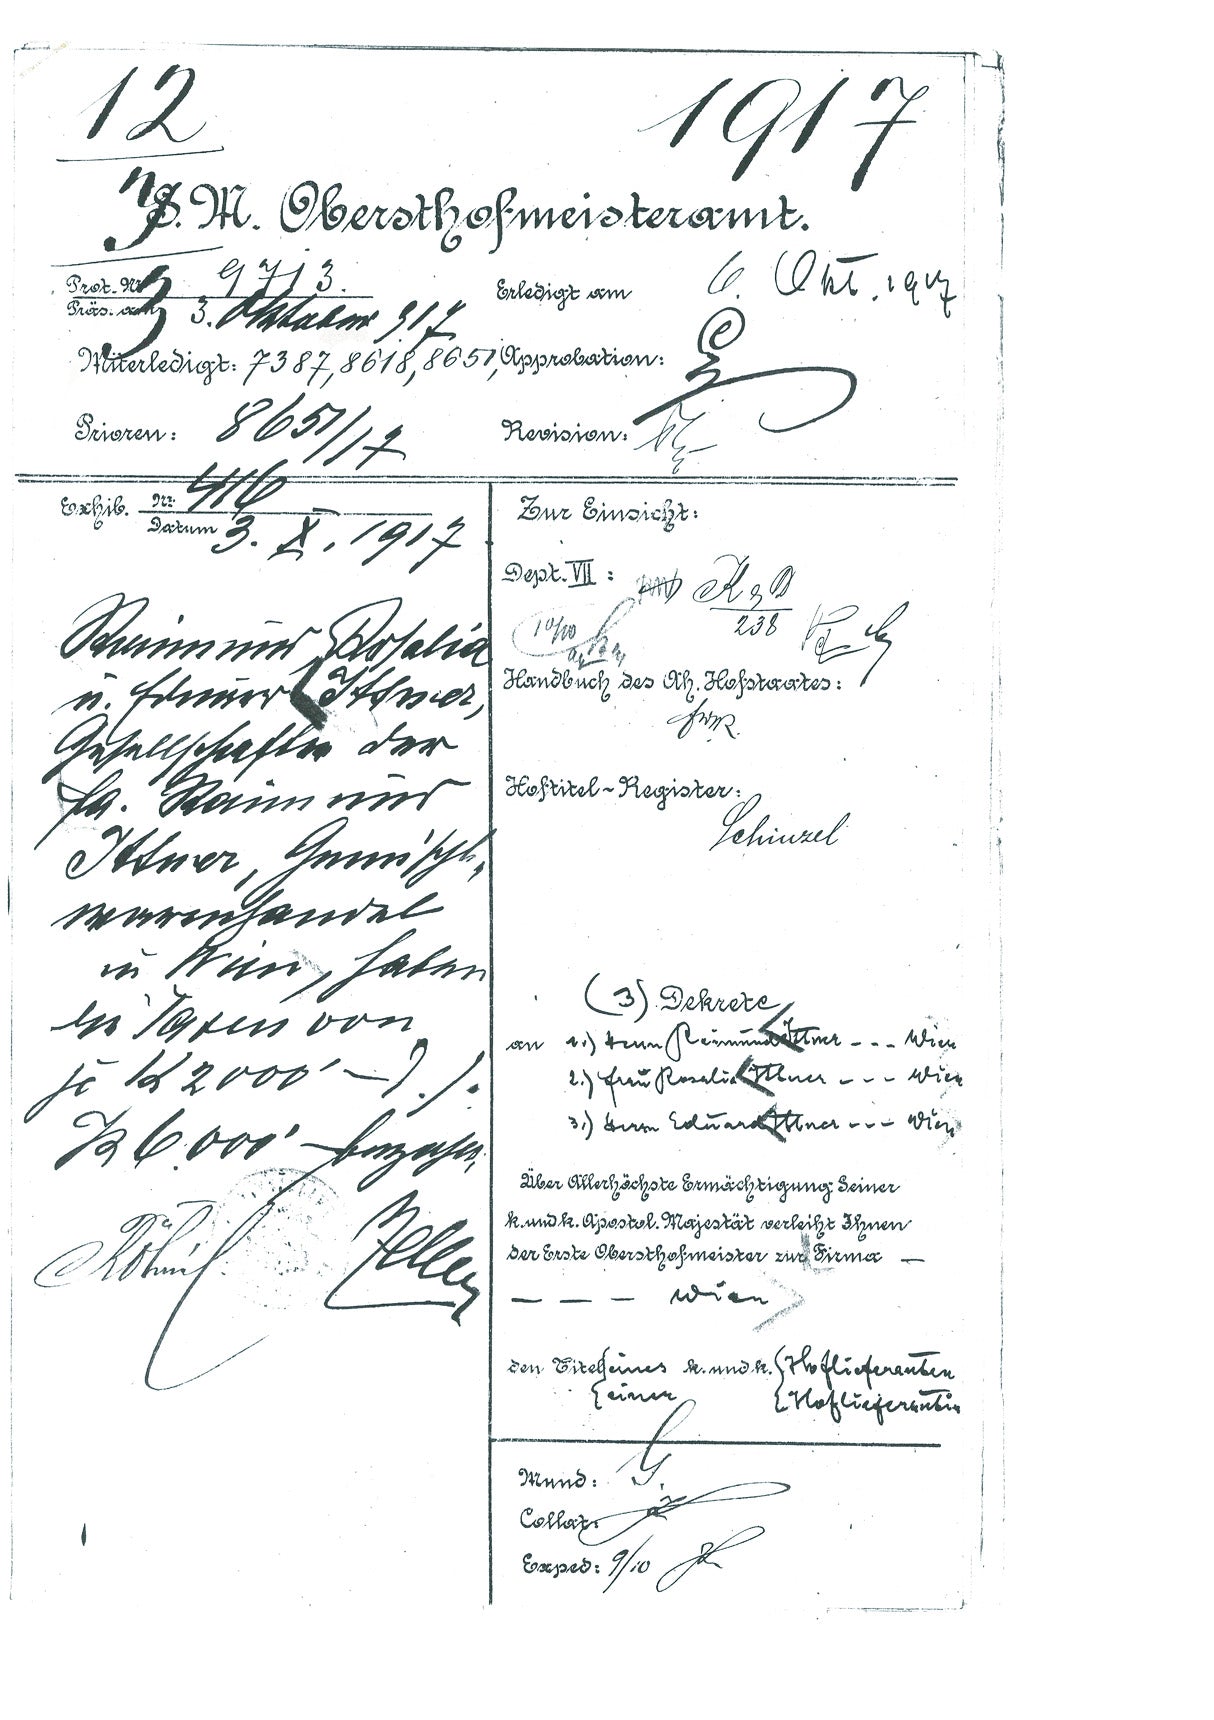 12
1917
S. M. Obersthofmeisteramt.
Prot. Nr. 9713.
Präs. am 3. Oktober 917
Erledigt am 6. Okt. 1917
Miterledigt: 7387, 8618, 8651,
Approbation:
Prioren: 8651/17
Revision:
Exhib. Nr. 416
Datum 3. X. 1917
Raimund, Rosalia
u. Eduard Ittner,
Gesellschafter der
Fa. Raimund
Ittner, Gemischt-
warenhandel
in Wien, haben
die Taxen von
je K 2000'—
K 6.000'— bezahlt.
Zur Einsicht:
Dept. VII:
238
10/10
Handbuch des Ah. Hofstaates:
Hoftitel-Register:
Schinzel
(3) Dekrete
an 1.) Herrn Raimund Ittner --- Wien
2.) Frau Rosalia Ittner --- Wien
3.) Herrn Eduard Ittner --- Wien
Über Allerhöchste Ermächtigung Seiner
k. und k. Apostol. Majestät verleiht Ihnen
der Erste Obersthofmeister zur Firma —
— — — Wien
den Titel eines k. und k. Hoflieferanten
einer Hoflieferantin
Mund:
Collat:
Exped: 9/10